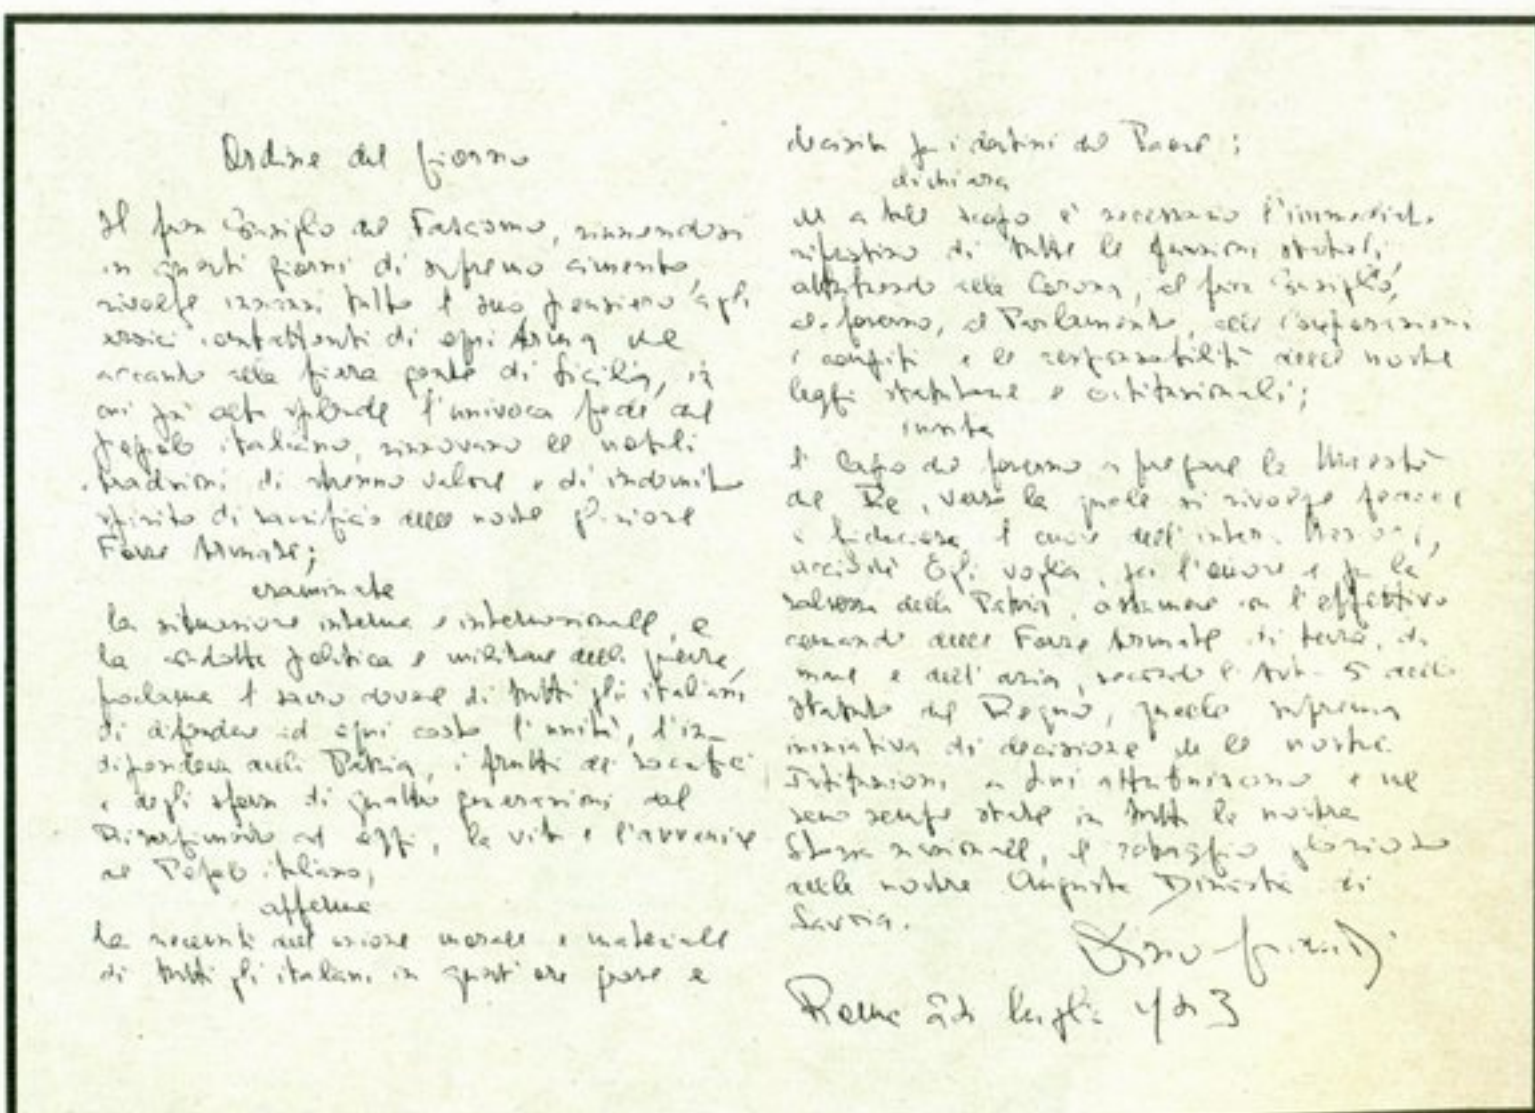 Ordine del giorno
Il Gran Consiglio del Fascismo, riunendosi
in questi giorni di supremo cimento,
rivolge innanzi tutto il suo pensiero agli
eroici combattenti di ogni Arma che
accanto alla fiera gente di Sicilia, in
cui più alta splende l'univoca fede del
popolo italiano, rinnovano le nobili
tradizioni di strenuo valore e di indomito
spirito di sacrificio delle nostre gloriose
Forze Armate;
esaminata
la situazione interna e internazionale, e
la condotta politica e militare della guerra,
proclama il sacro dovere di tutti gli italiani
di difendere ad ogni costo l'unità, l'in-
dipendenza della Patria, i frutti dei sacrifici
e degli sforzi di quattro generazioni dal
Risorgimento ad oggi, la vita e l'avvenire
del Popolo italiano;
afferma
la necessità dell'unione morale e materiale
di tutti gli italiani in quest'ora grave e
decisiva per i destini del Paese;
dichiara
che a tale scopo è necessario l'immediato
ripristino di tutte le funzioni statali,
attribuendo alla Corona, al Gran Consiglio,
al Governo, al Parlamento, alle Corporazioni
i compiti e le responsabilità delle nostre
leggi statutarie e costituzionali;
invita
il Capo del Governo a pregare la Maestà
del Re, verso la quale si rivolge fedele
e fiducioso il cuore dell'intera Nazione,
acciocché Egli voglia, per l'onore e per la
salvezza della Patria, assumere con l'effettivo
comando delle Forze Armate di terra, di
mare e dell'aria, secondo l'Art. 5 dello
Statuto del Regno, quella suprema
iniziativa di decisione che le nostre
Istituzioni a Lui attribuiscono e che
sono sempre state in tutta la nostra
Storia nazionale, il retaggio glorioso
della nostra Augusta Dinastia di
Savoia.
Dino Grandi
Roma 24 luglio 1943